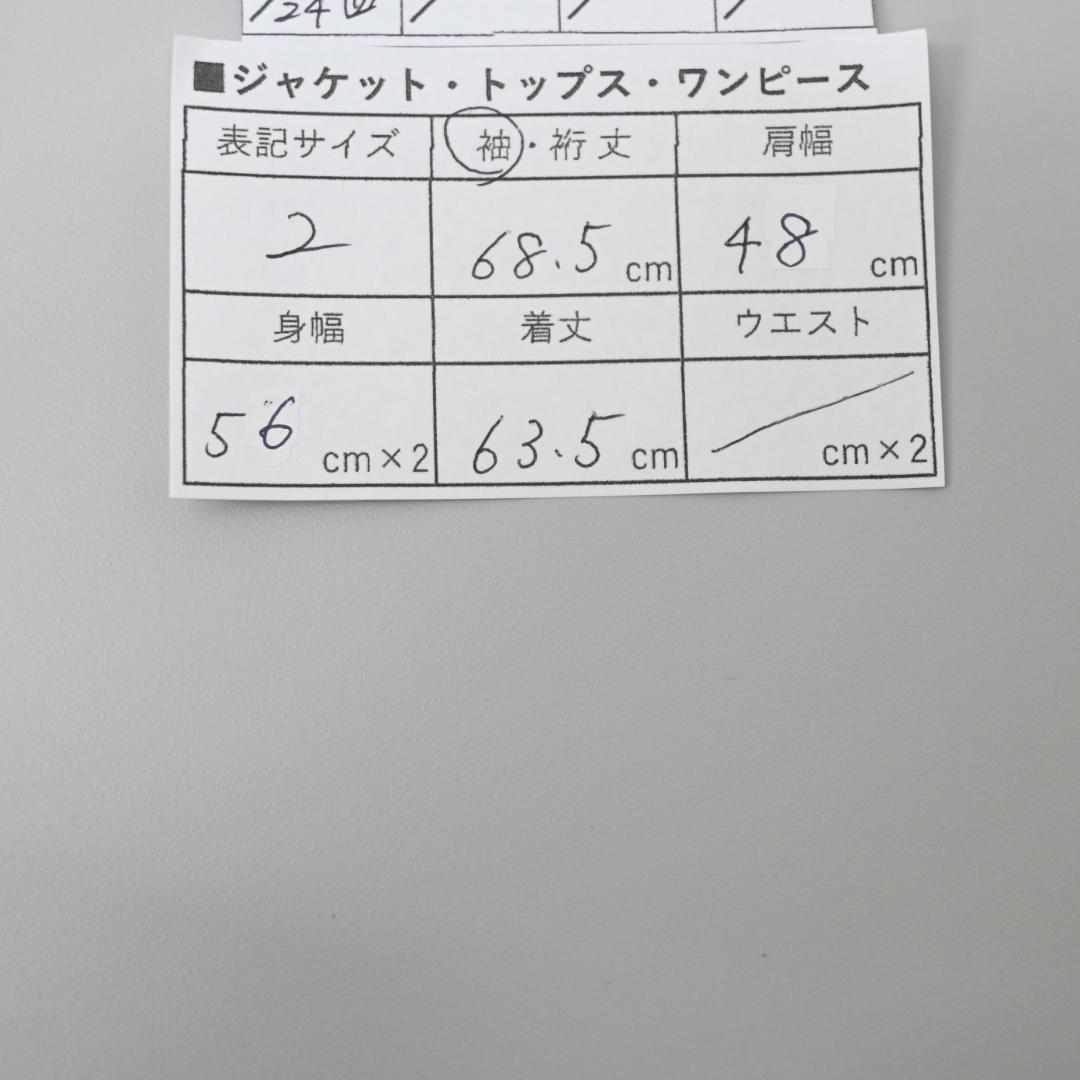 ■ジャケット・トップス・ワンピース
表記サイズ 袖・裄丈 肩幅
2 68.5 cm 48 cm
身幅 着丈 ウエスト
56 cm×2 63.5 cm ／ cm×2